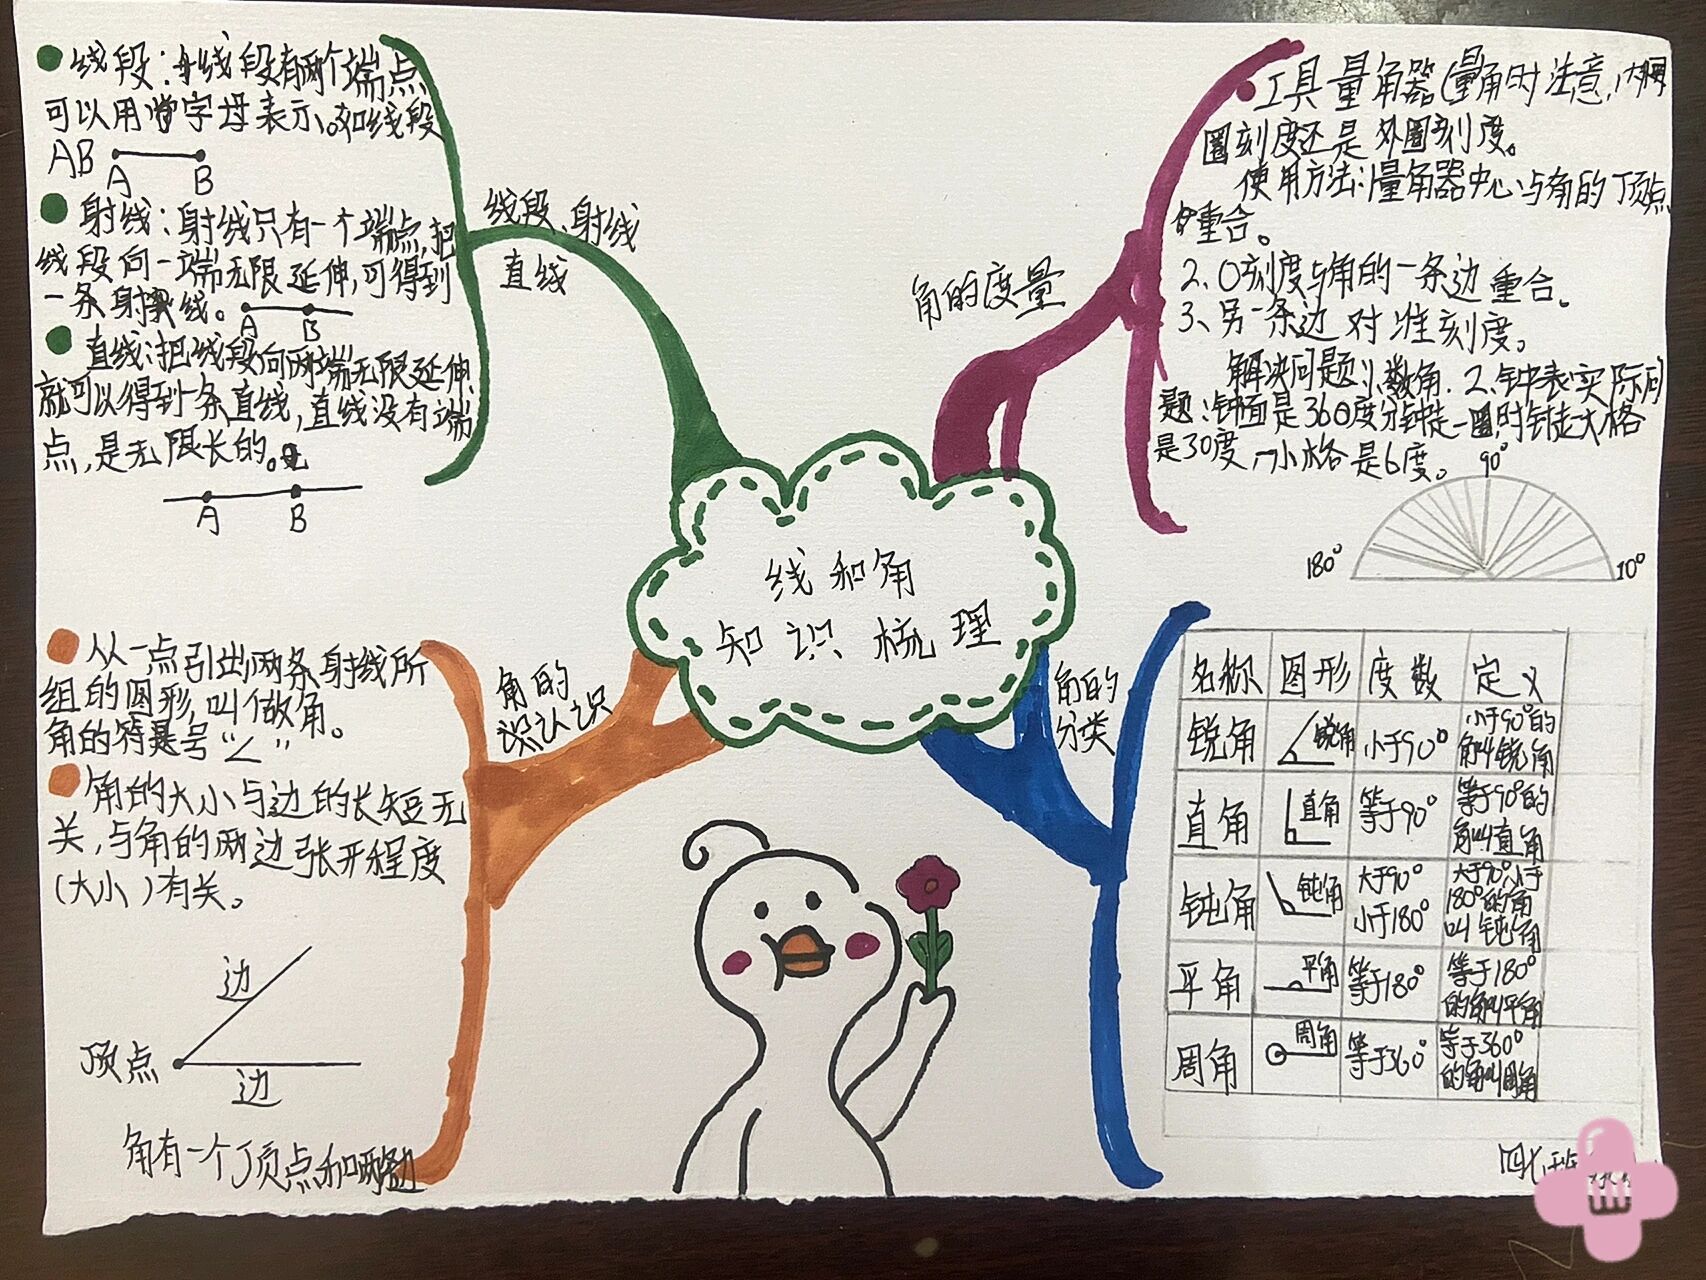 线段：线段有两个端点
可以用字母表示。如线段
AB
A B
射线：射线只有一个端点，把
线段向一端无限延伸，可得到
一条射线。
A B
直线：把线段向两端无限延伸，
就可以得到一条直线，直线没有端
点，是无限长的。
A B
线段、射线
直线
工具 量角器（量角时注意，内
圈刻度还是外圈刻度。
使用方法：1量角器中心与角的顶点
重合。
2、0刻度与角的一条边重合。
3、另一条边对准刻度。
解决问题：1、数角. 2、钟表实际问
题：钟面是360度分针走一圈，时针走大格
是30度，小格是6度。
90°
180° 10°
角的度量
线和角
知识梳理
角的
认识
从一点引出两条射线所
组的图形，叫做角。
角的符号“∠”
角的大小与边的长短无
关，与角的两边张开程度
（大小）有关。
边
顶点
边
角有一个顶点和两条边
角的
分类
名称 图形 度数 定义
锐角 锐角 小于90° 小于90°的
角叫锐角
直角 直角 等于90° 等于90°的
角叫直角
钝角 钝角 大于90° 小于180° 大于90°小于
180°的角
叫钝角
平角 平角 等于180° 等于180°
的角叫平角
周角 周角 等于360° 等于360°
的角叫周角